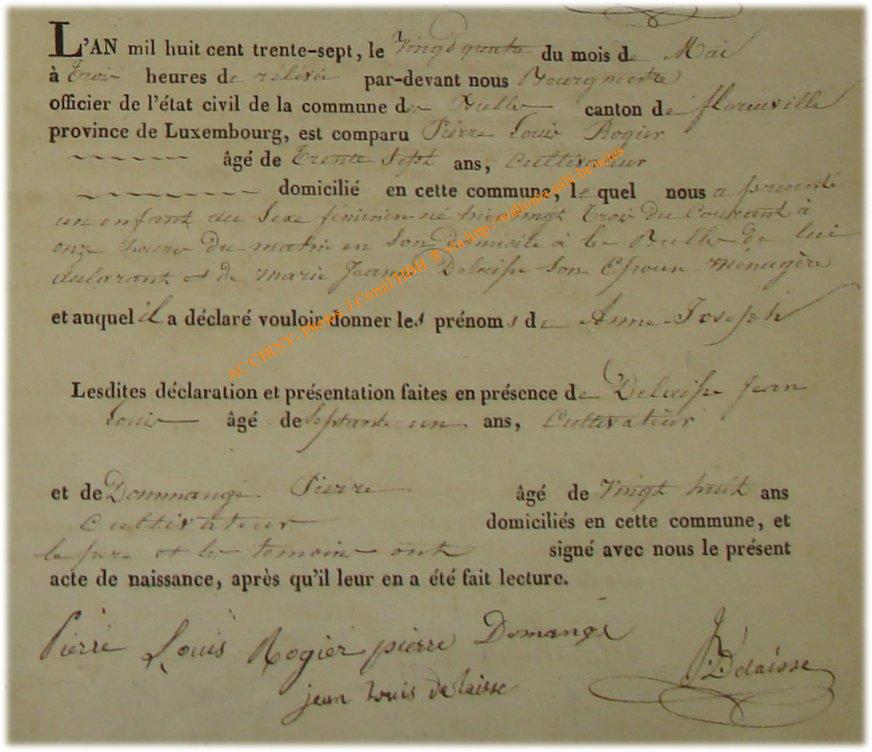 L'AN mil huit cent trente-sept, le Vingt quatre du mois de Mai
à trois heures de rélévée par-devant nous Bourgmestre
officier de l'état civil de la commune de Bulle canton de florenville
province de Luxembourg, est comparu Pierre Louis Rogier
âgé de trente Sept ans, Cultivateur
domicilié en cette commune, le quel nous a présenté
un enfant du Sexe féminin né hier vingt trois du Courant à
onze heures du matin en Son domicile à la Bulle de lui
déclarant et de marie Jeanne Delaisse Son Epouse ménagère
et auquel il a déclaré vouloir donner les prénoms de Anne-Joseph
Lesdites déclaration et présentation faites en présence de Delaisse Jean
Louis âgé de Septante un ans, Cultivateur
et de Dommange Pierre âgé de Vingt huit ans
Cultivateur domiciliés en cette commune, et
le père et les temoins ont signé avec nous le présent
acte de naissance, après qu'il leur en a été fait lecture.
Pierre Louis Rogier pierre Domange
jean Louis delaisse Delaisse